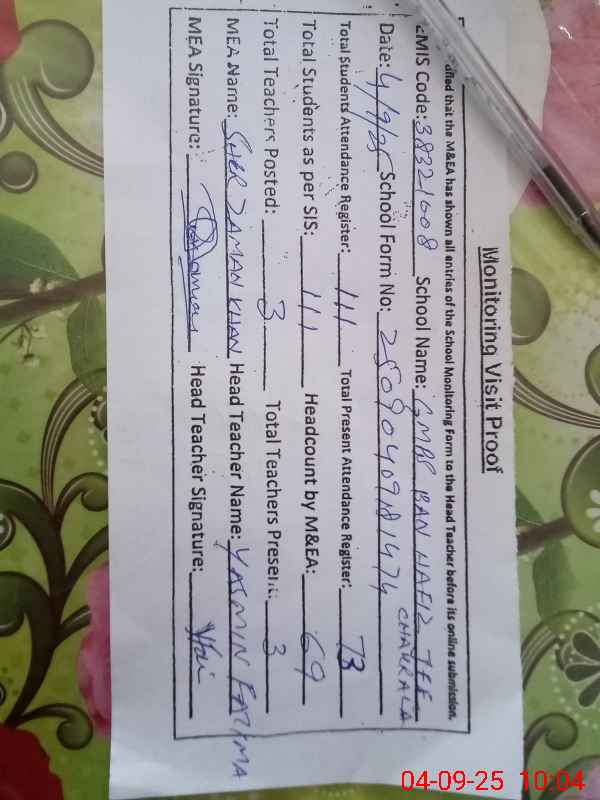 Monitoring Visit Proof
ified that the M&EA has shown all entries of the School Monitoring Form to the Head Teacher before its online submission.
EMIS Code: 38321608 School Name: GMPS BAN HAFIZ JEE
CHAKRALA
Date: 4/9/25 School Form No: 25090409181474
Total Students Attendance Register: 111 Total Present Attendance Register: 73
Total Students as per SIS: 111 Headcount by M&EA: 69
Total Teachers Posted: 3 Total Teachers Present: 3
MEA Name: SHER ZAMAN KHAN Head Teacher Name: YASMIN FATIMA
MEA Signature: Head Teacher Signature:
04-09-25 10:04